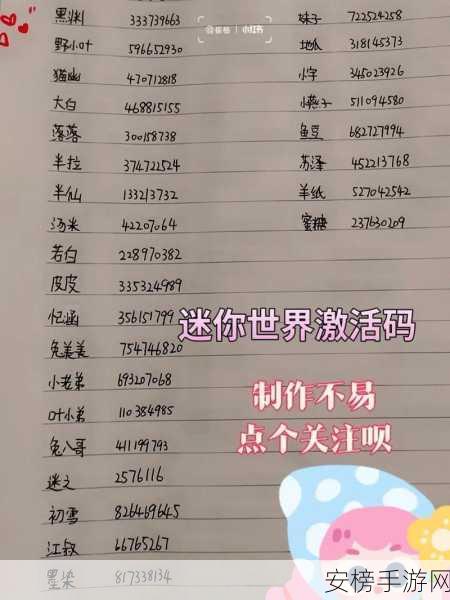 黑渊 333739663
野小叶 596652930
猫幽 470712818
大白 468815155
落落 300158738
半拉 374722524
半仙 133213732
汤米 42207064
若白 228970382
皮皮 335324989
忆涵 356151799
兔美美 754746820
小老弟 693207068
叶小弟 110384985
兔八哥 411199793
迷之 2576116
初雪 826469645
江叙 66765267
墨染 817338134
妹子 722524258
地瓜 318145373
小字 345023926
小燕子 511094580
鱼豆 682727994
苏泽 452213768
羊纸 527042542
蜜糖 237630209
小红书
迷你世界激活码
制作不易
点个关注呗
安榜手游网